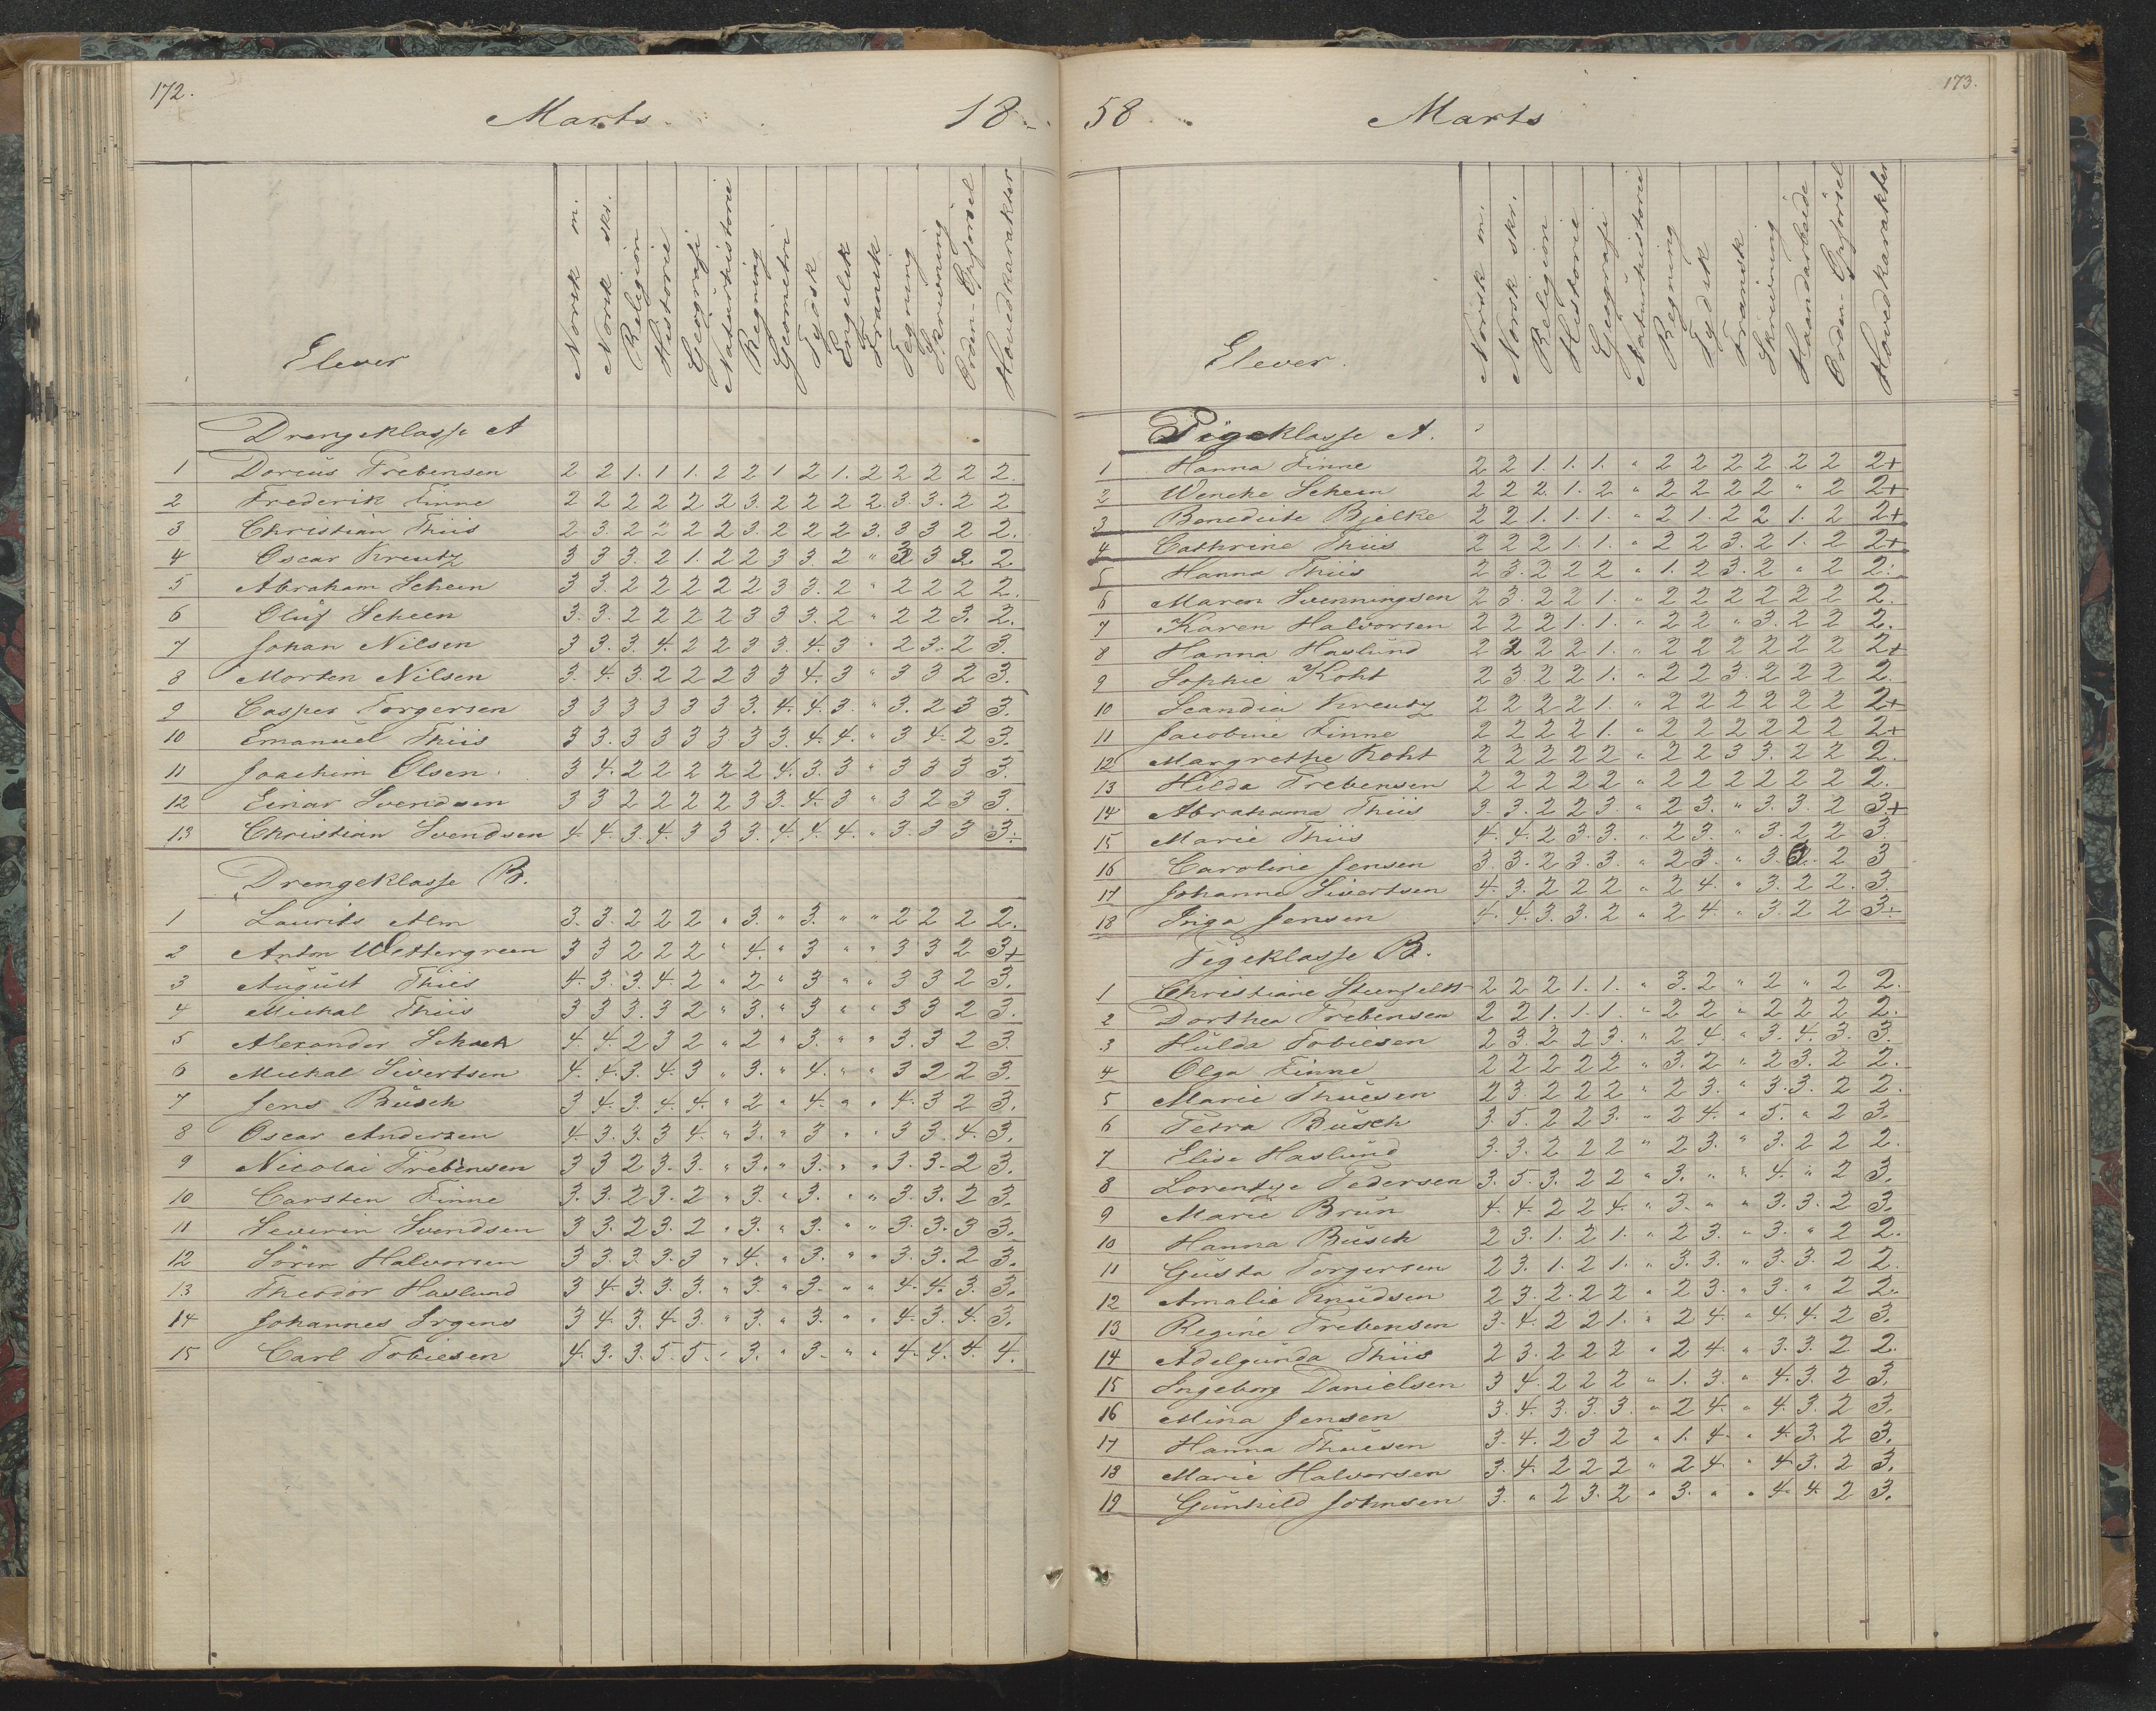 172.
Marts.
18
Elever
Norsk m.
Norsk skr.
Religion
Historie
Geografi
Naturhistorie
Regning
Geometri
Tydsk
Engelsk
Fransk
Tegning
Skrivning
Orden-Opförsel
Hovedkarakter
Drengeklasse A
1 Dorius Prebensen 2 2 1. 1 1. 2 2 1 2 1. 2 2 2 2 2.
2 Frederik Finne 2 2 2 2 2 2 3. 2 2 2 2. 3. 3. 2 2
3 Christian Thiis 2 3. 2 2 2 2 3. 2 2 2 3. 3 3 2 2.
4 Oscar Kreutz 3 3 3. 2 1. 2 2 3 3. 2 " 3 3 2 2
5 Abraham Scheen 3 3. 2 2 2 2 2 3 3. 2 " 2 2 2 2.
6 Oluf Scheen 3. 3. 2 2 2 2 3 3 3. 2 " 2 2 3. 2.
7 Johan Nilsen 3 3. 3. 4. 2 2 3 3. 4. 3 " 2 3. 2 3.
8 Morten Nilsen 3. 4. 3. 2 2 2 3 3 4. 3 " 3 3 2 3.
9 Casper Torgersen 3 3 3 3 3 3 3. 4. 4. 3. " 3. 2 3 3.
10 Emanuel Thiis 3 3. 3 3 3 3. 3 3. 4. 4. " 3 4. 2 3.
11 Joachim Olsen 3 4. 2 2 2 2 2 4. 3. 3 " 3 3 3 3.
12 Einar Svendsen 3 3 2 2 2 2 3 3. 4. 3 " 3 2 3 3.
13 Christian Svendsen 4. 4. 3. 4. 3 3 3. 4. 4. 4. " 3. 3 3 3.
Drengeklasse B.
1 Laurits Alm 3. 3. 2 2 2 " 3. " 3. " " 2 2 2 2.
2 Anton Wettergreen 3 3 2 2 2 " 4. " 3 " " 3 3 2 3+
3 August Thiis 4. 3. 3. 4. 2 " 2 " 3 " " 3 3 2 3.
4 Michal Thiis 3 3 3. 3 2 " 3. " 3 " " 3 3 2 3.
5 Alexander Schack 4. 4. 2 3 2 " 2 " 3. " " 3. 3 2 3
6 Michal Sivertsen 4. 4. 3. 4. 3 " 3. " 4. " " 3 2 2 3.
7 Jens Büsch 3 4. 3. 4. 4. " 2 " 4. " " 4. 3 2 3.
8 Oscar Andersen 4. 3. 3. 3 4. " 3. " 3 " " 3 3. 4. 3.
9 Nicolai Prebensen 3 3 2 3. 3. " 3. " 3. " " 3. 3. 2 3.
10 Carsten Finne 3. 3. 2 3. 2 " 3. " 3. " " 3. 3. 2 3.
11 Severin Svendsen 3 3. 2 3. 2 " 3. " 3. " " 3. 3. 3 3.
12 Sören Halvorsen 3 3. 3. 3. 3 " 4. " 3. " " 3. 3. 2 3.
13 Theodor Haslund 3 4. 3. 3. 3. " 3. " 3. " " 4. 4. 3. 3.
14 Johannes Irgens 3 4 3. 4. 3. " 3. " 3. " " 4. 3. 4. 3.
15 Carl Tobiesen 4. 3. 3. 5. 5. " 3. " 3. " " 4. 4. 4. 4.
173.
58.
Marts
Elever.
Norsk m.
Norsk skr.
Religion
Historie
Geografi
Naturhistorie
Regning
Tydsk
Fransk
Skrivning
Haandarbeide
Orden-Opförsel
Hovedkarakter
Pigeklasse A.
1 Hanna Finne 2 2 1. 1. 1. " 2 2 2 2 2 2 2+
2 Wencke Scheen 2 2 2. 1. 2 " 2 2 2 2 " 2 2+
3 Benedicte Bjelke 2 2 1. 1. 1. " 2 1. 2 2 1. 2 2+
4 Cathrine Thiis 2 2 2 1. 1. " 2 2 3. 2 1. 2 2+
5 Hanna Thiis 2 3. 2 2 2 " 1. 2 3. 2 " 2 2.
6 Maren Svenningsen 2 3. 2 2 1. " 2 2 2 2 2 2 2.
7 Karen Halvorsen 2 2 2 1. 1. " 2 2 " 3. 2 2 2.
8 Hanna Haslund 2 2 2 2 1. " 2 2 2 2 2 2 2+
9 Sophie Koht 2 3. 2 2 1. " 2 2 3. 2 2 2 2.
10 Scandia Kreutz 2 2 2 2 1. " 2 2 2 2 2 2 2+
11 Jacobine Finne 2 2 2 2 1. " 2 2 2 2 2 2 2+
12 Margrethe Koht 2 2 2 2 2 " 2 2 3 3. 2 2 2.
13 Hilda Prebensen 2 2 2 2 2 " 2 2 2 2 2 2 2.
14 Abrahama Thiis 3. 3. 2 2 3 " 2 3. " 3. 3. 2 3+
15 Marie Thiis 4. 4. 2 3 3. " 2 3. " 3. 2 2 3
16 Caroline Jensen 3. 3. 2 3. 3. " 2 3. " 3. 3. 2 3
17 Johanne Sivertsen 4. 3. 2 2 2 " 2 4. " 3. 2 2. 3.
18 Inga Jensen 4. 4. 3. 3. 2 " 2 4. " 3. 2 2 3.
Pigeklasse B.
1 Christiane 2 2 2 1. 1. " 3. 2 " 2 " 2 2.
2 Dorthea Prebensen 2 2 1. 1. 1. " 2 2 " 2 2 2 2.
3 Hulda Tobiesen 2 3. 2 2 3. " 2 4. " 3. 4. 3. 3.
4 Olga Finne 2 2 2 2 2 " 3. 2 " 2 3. 2 2.
5 Marie Thuesen 2 3. 2 2 2 " 2 3. " 3. 3. 2 2.
6 Petra Büsch 3. 5. 2 2 3. " 2 4. " 5. " 2 3.
7 Elise Haslund 3. 3. 2 2 2 " 2 3. " 3. 2 2 2.
8 Lorentze Pedersen 3. 5. 3. 2 2 " 3. " " 4. " 2 3.
9 Marie Brun 4. 4. 2 2 4. " 3. " " 3. 3. 2 3.
10 Hanna Büsch 2 3. 1. 2 1. " 2 3. " 3. " 2 2.
11 Gusta Torgersen 2 3. 1. 2 1. " 3. 3. " 3. 3. 2 2.
12 Amalie Knudsen 2 3. 2. 2 2 " 2 3. " 3. " 2 2.
13 Regine Prebensen 3. 4. 2 2 1. " 2 4. " 4. 4. 2 3.
14 Adelgunda Thiis 2 3. 2 2 2 " 2 4. " 3. 3. 2 2.
15 Ingeborg Danielsen 3 4. 2 2 2 " 1. 3. " 4. 3. 2 3.
16 Mina Jensen 3. 4. 3. 3. 3. " 2 4. " 4. 3. 2 3.
17 Hanna Thuesen 3. 4. 2 3 2 " 1. 4. " 4. 3. 2 3.
18 Marie Halvorsen 3. 4. 2 2 2 " 2 4. " 4. 3. 2 3.
19 Gunhild Johnsen 3. " 2 3. 2 " 3. " " 4. 4. 2 3.